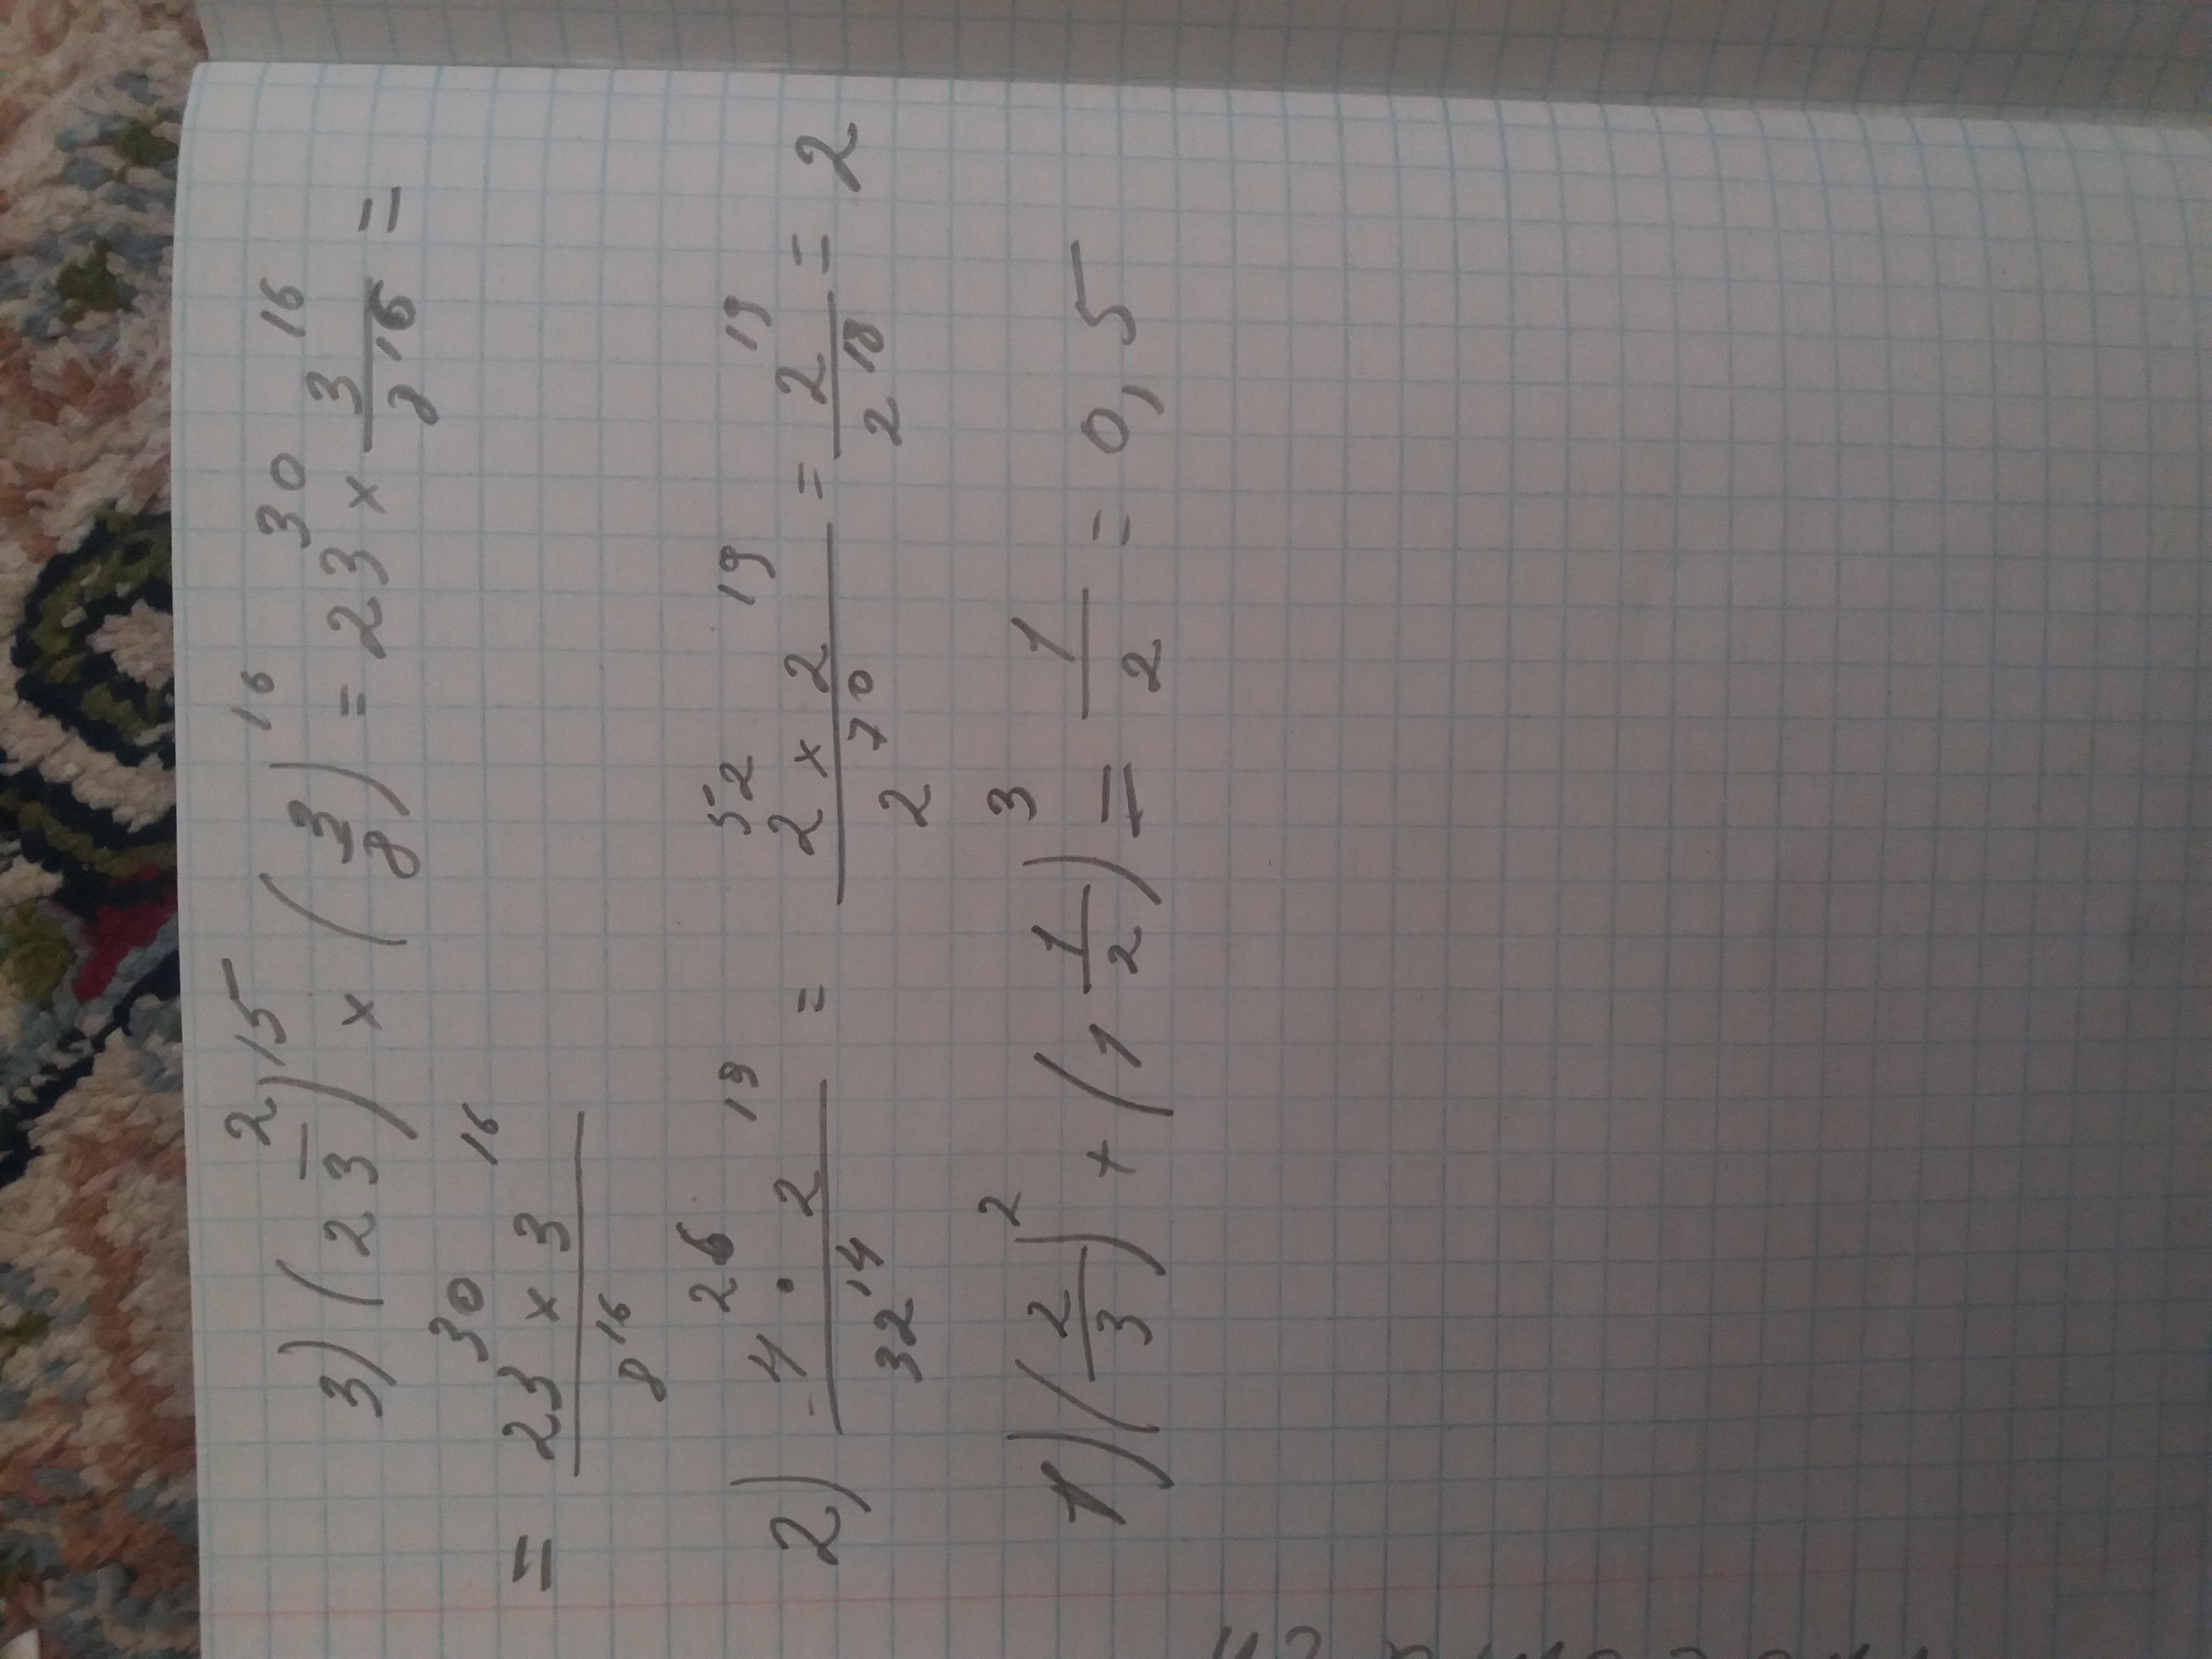 3) (2 2/3)^15 × (3/8)^16 = 23^30 × 3^16/8^16 =
= 23^30 × 3^16 / 8^16
2) 4^26 · 2^19 / 32^14 = 2^52 × 2^19 / 2^70 = 2^19/2^18 = 2
1) (2/3)^2 + (1 1/2)^3 = 1/2 = 0,5